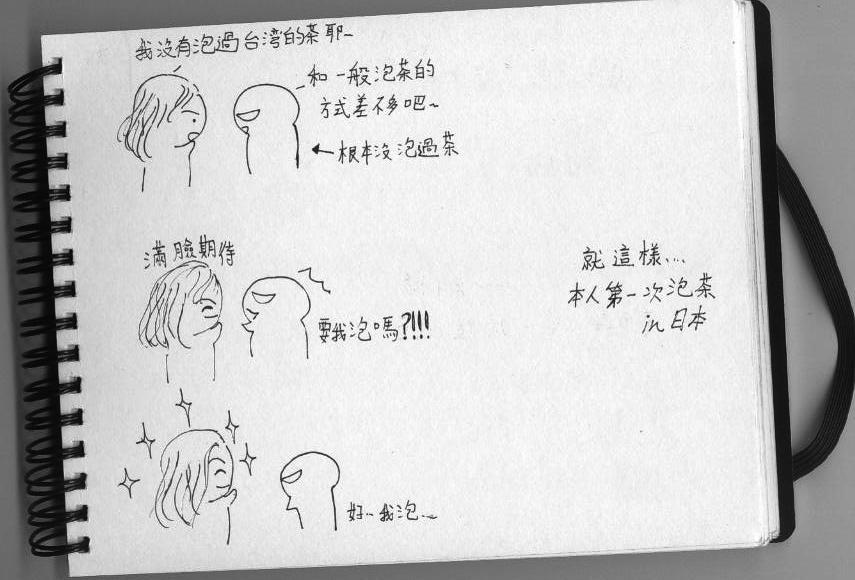 我沒有泡過台湾的茶耶~
和一般泡茶的
方式差不多吧~
根本沒泡過茶
滿臉期待
要我泡嗎?!!!
好…我泡…
就這樣...
本人第一次泡茶
in 日本